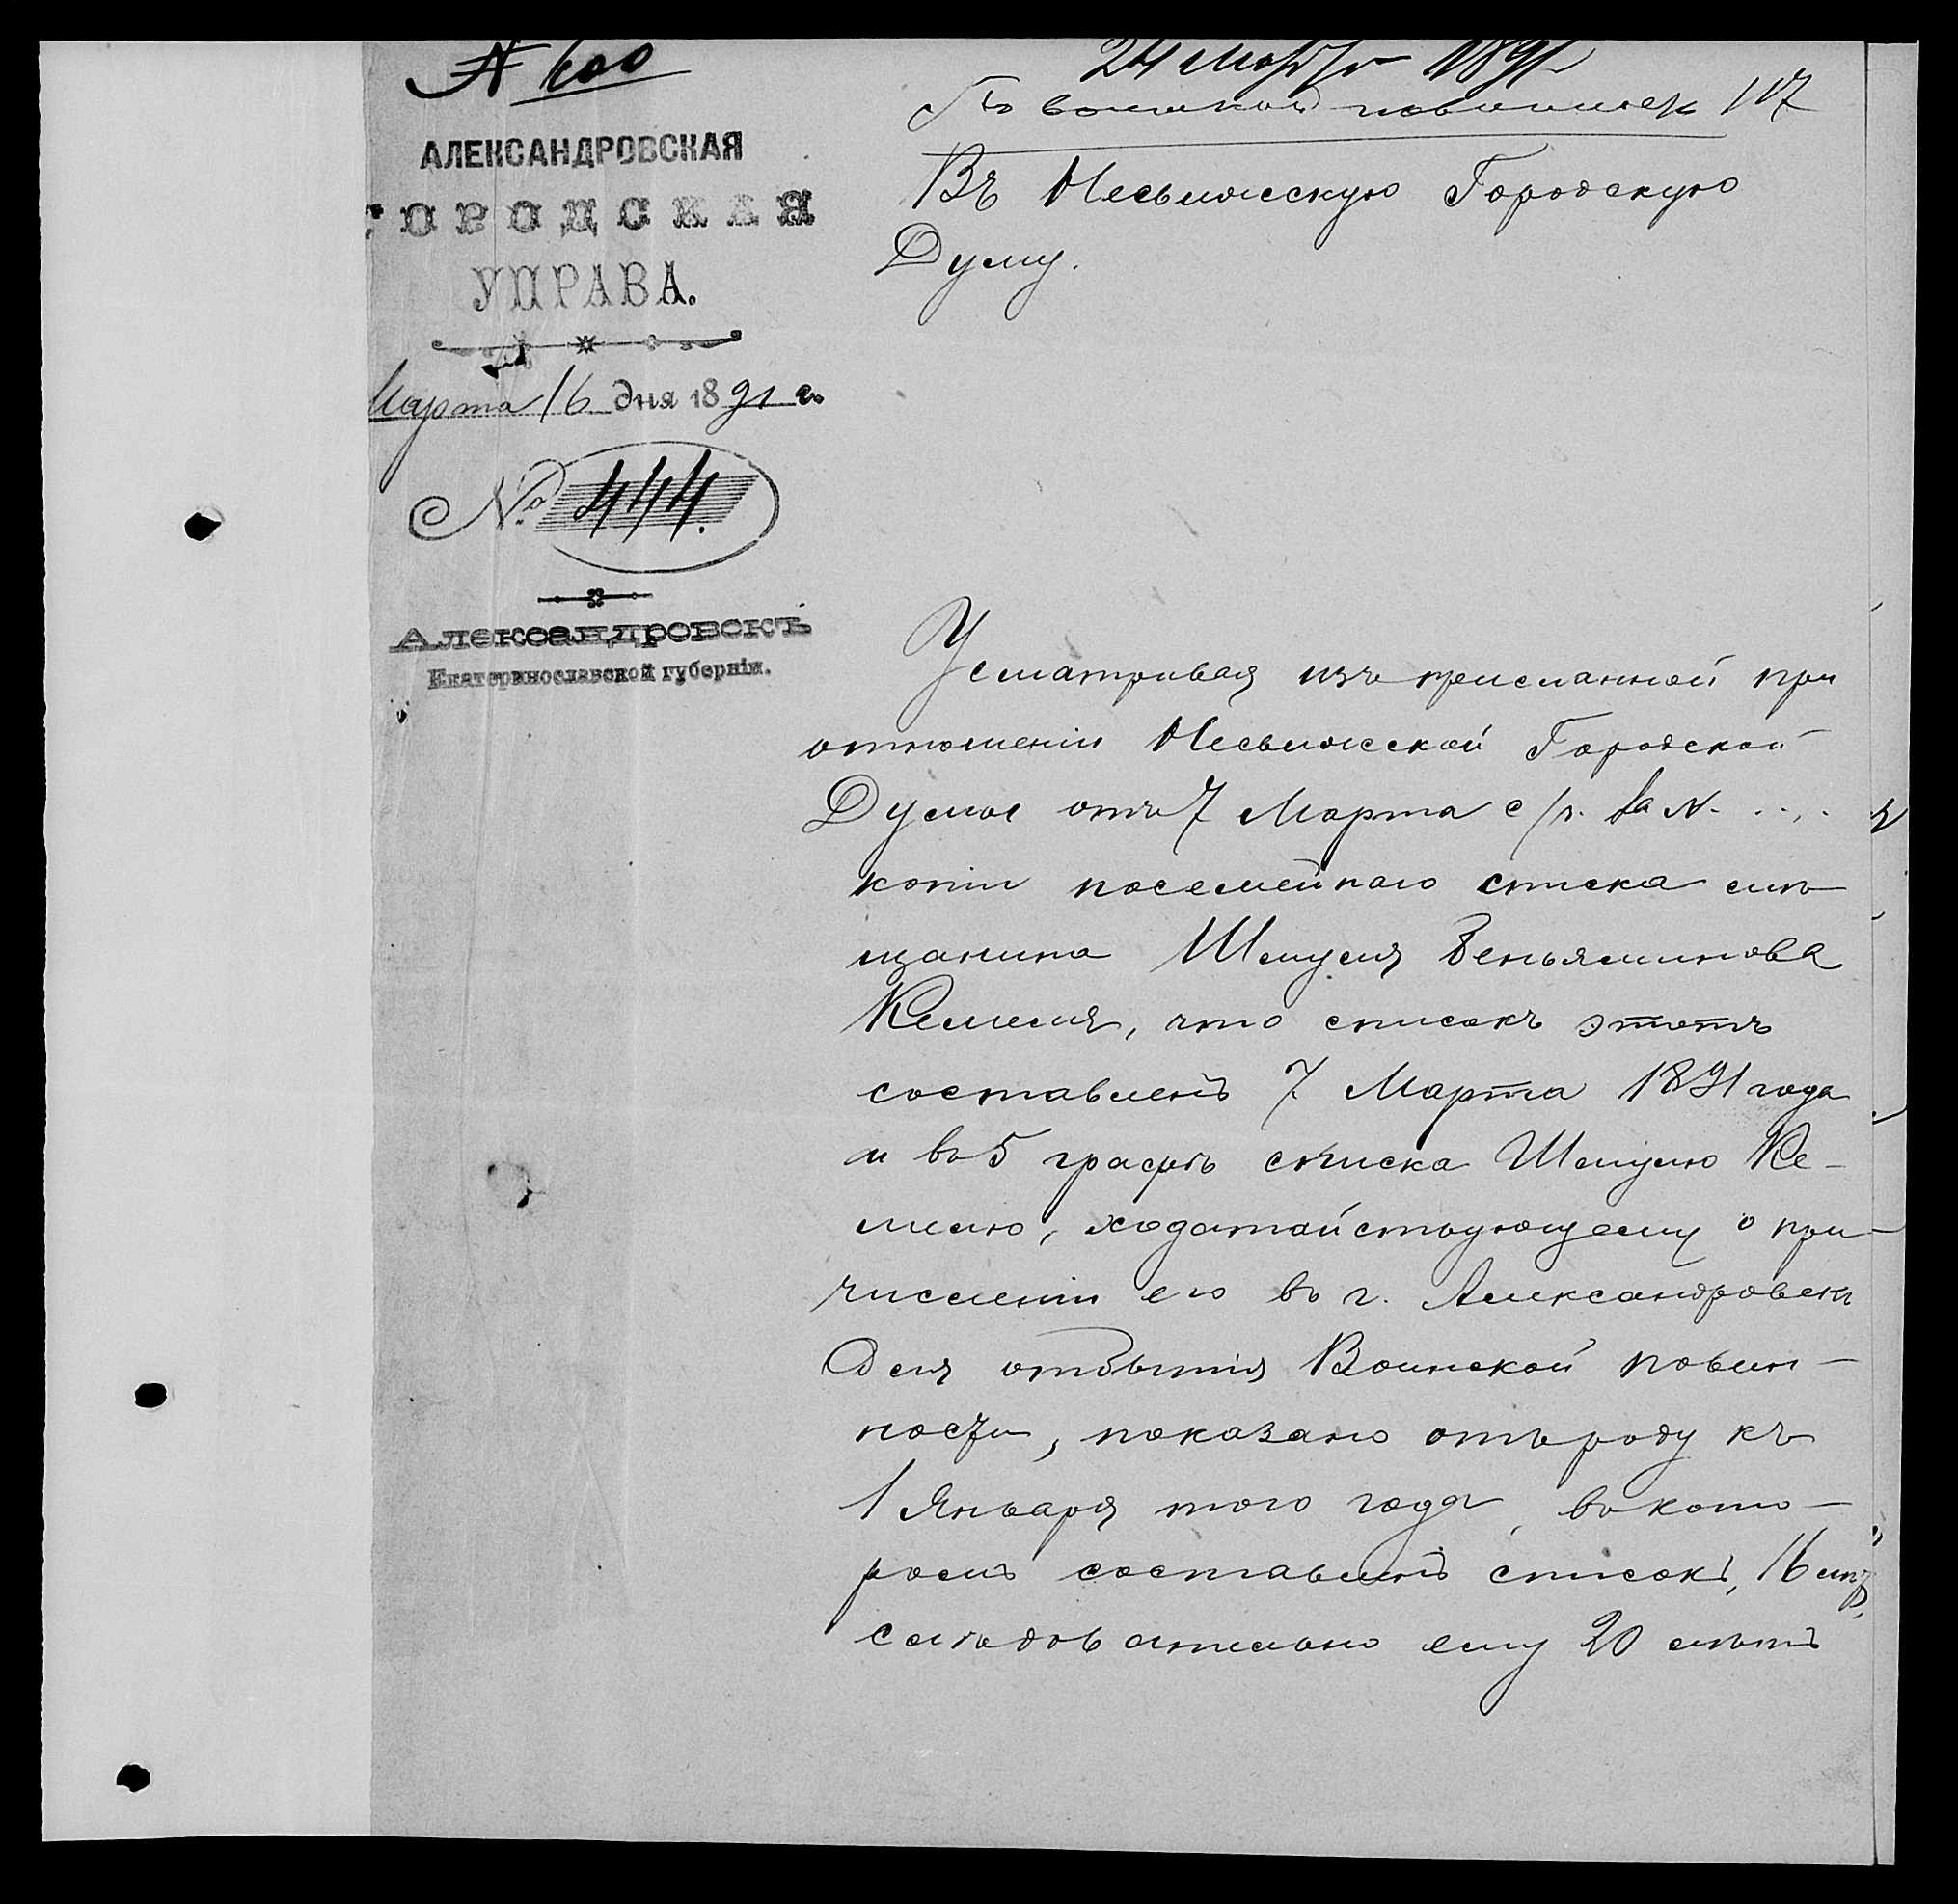 № 400
24 Марта 1891
По воинской повинности 117
АЛЕКСАНДРОВСКАЯ
ГОРОДСКАЯ
УПРАВА.
Марта 16 дня 1891 г.
№ 444.
Александровскъ
Екатеринославской губерніи.
Въ Несвижскую Городскую
Думу.
Усматривая изъ присланной при
отношеніи Несвижской Городской
Думы отъ 7 Марта с/г. за №
копіи посемейнаго списка мѣ
щанина Шмуля Беньяминова
Кемеля, что списокъ этотъ
составленъ 7 Марта 1891 года
и въ 5 графѣ списка Шмулю Ке-
мелю, ходатайствующему о при-
численіи его въ г. Александровскъ
для отбытія Воинской повин-
ности, показано отъ роду къ
1 Января того года, въ кото-
ромъ составленъ списокъ, 16 лѣтъ,
слѣдовательно ему 20 лѣтъ